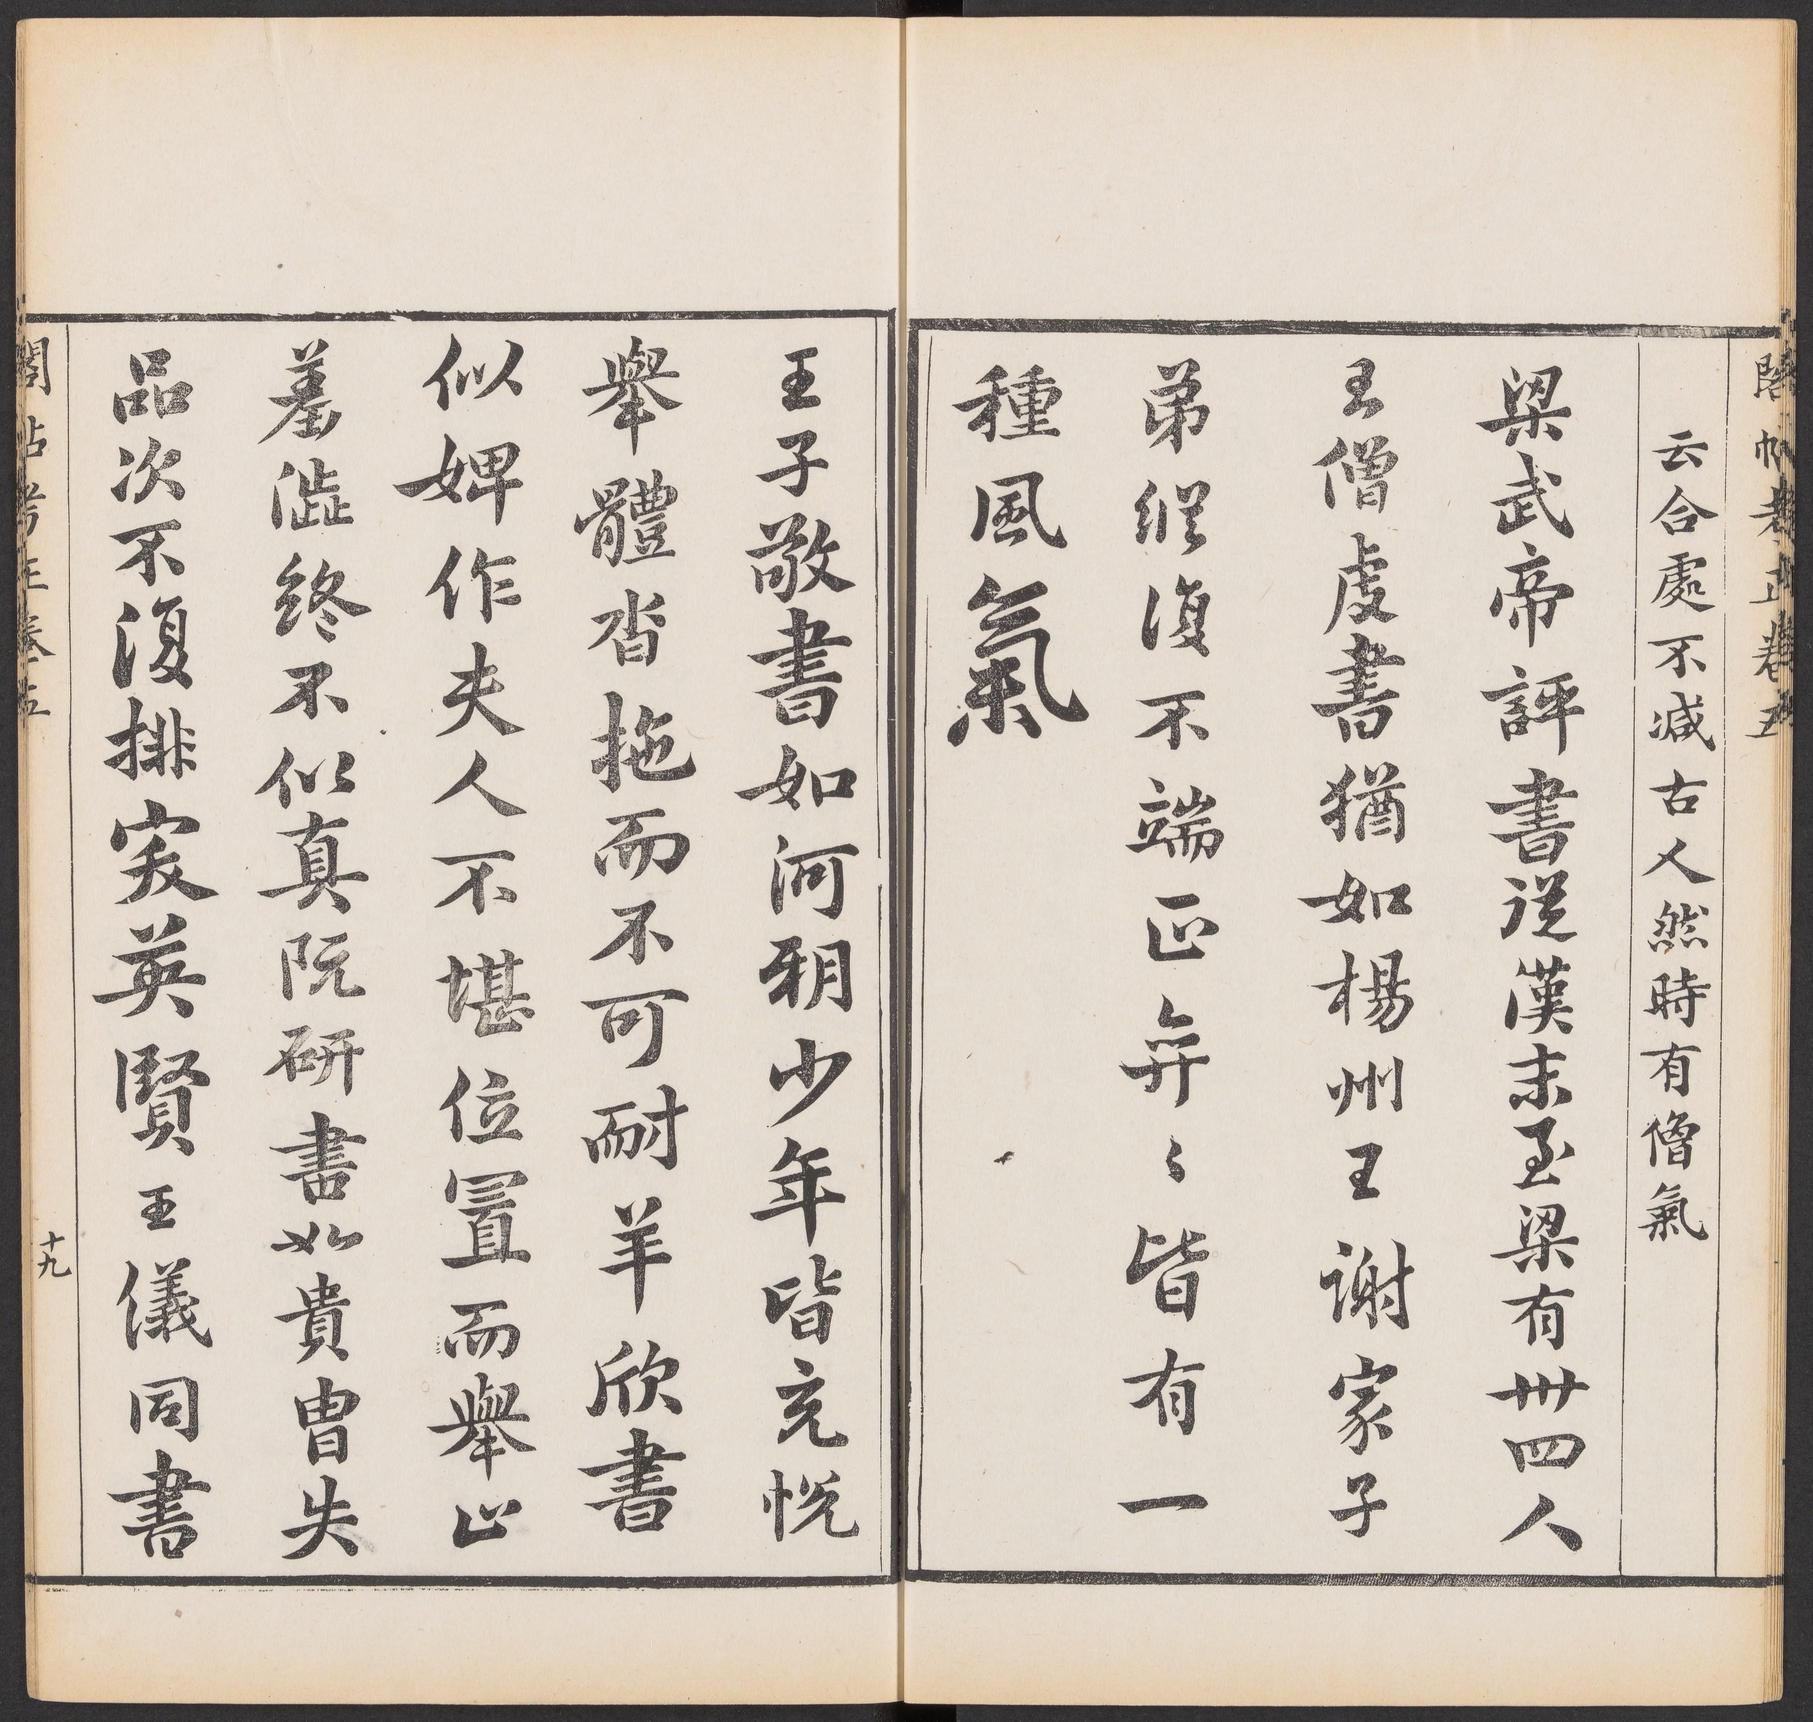 閣帖考正卷五
云合處不減古人然時有傖氣
梁武帝評書從漢末至梁有卅四人
王僧虔書猶如楊州王謝家子
弟縱復不端正弈〻皆有一
種風氣
王子敬書如河朔少年皆充悅
舉體沓拖而不可耐羊欣書
似婢作夫人不堪位置而舉止
羞澁終不似真阮研書如貴胄失
品次不復排突英賢王儀同書
閣帖考正卷五
十九